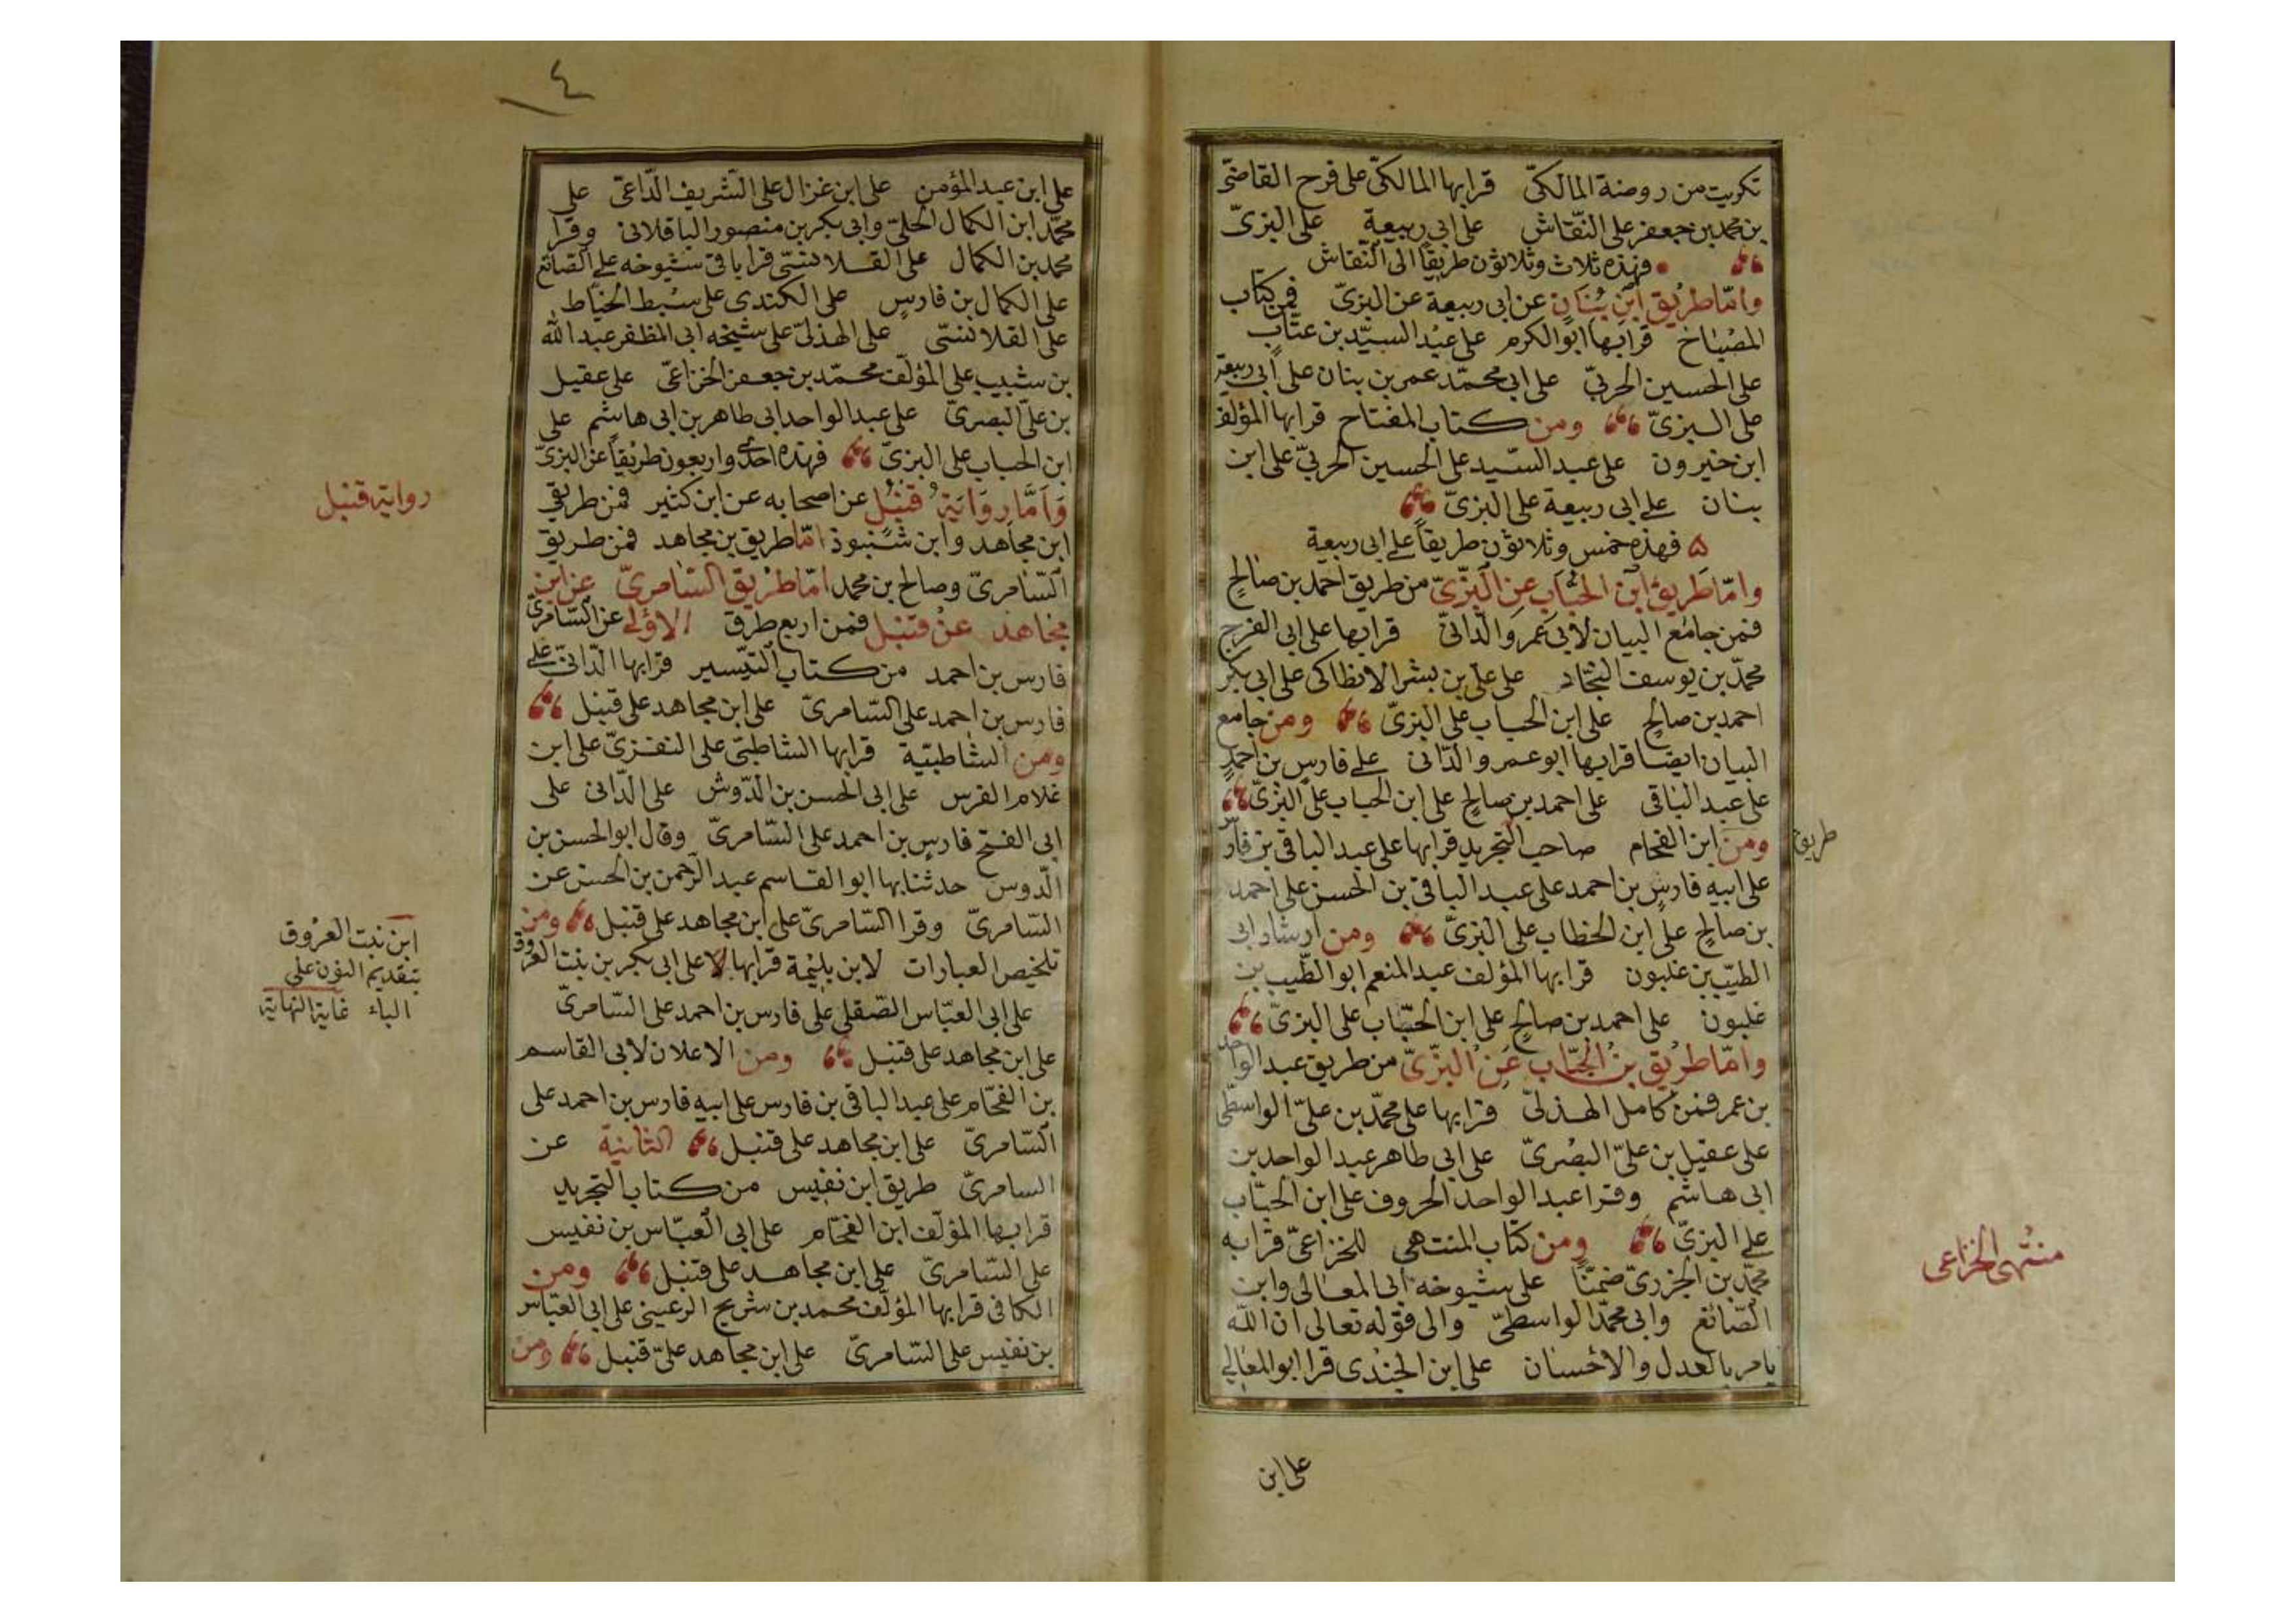 تكريت من روضة المالكىّ قرا بها المالكىّ على فرح القاضىّ
بن محمد بن جعفر على النّقاش على ابى ربيعة على البزىّ
فهذه ثلاث وثلاثون طريقاً الى النّقاش
وامّا طريق ابن بُنان عن ابى ربيعة عن البزىّ فمن كتاب
المصباح قرا بها ابو الكرم على عبد السيّد بن عتّاب
على الحسين الحربىّ على ابى محمّد عمر بن بنان على ابى ربيعة
على البزىّ ومن كتاب المفتاح قرا بها المؤلف
ابن خيرون على عبد السّيد على الحسين الحربىّ على ابن
بنان على ابى ربيعة على البزىّ
فهذه خمس وثلاثون طريقاً على ابى ربيعة
وامّا طريق ابن الحُبَاب عن البزّىّ من طريق احمد بن صالحٍ
فمن جامع البيان لابى عمرو الدّانىّ قرا بها على ابى الفرج
محمّد بن يوسف النجّاد على على بن بشر الانطاكى على ابى بكر
احمد بن صالحٍ على ابن الحباب على البزىّ ومن جامع
البيان ايضا قرا بها ابو عمرو الدّانى على فارس بن احمد
على عبد الباقى على احمد بن صالحٍ على ابن الحباب على البزّىّ
ومن ابن الفحام صاحب التجريد قرا بها على عبد الباقى بن فارس
طريق
على ابيه فارس بن احمد على عبد الباقى بن الحسن على احمد
بن صالحٍ على ابن الخطاب على البزىّ ومن ارشاد ابى
الطيّب بن غلبون قرا بها المؤلف عبد المنعم ابو الطّيب بن
غلبون على احمد بن صالحٍ على ابن الحبّاب على البزىّ
وامّا طريق بن الحبّاب عن البزّىّ من طريق عبد الواحد
بن عمر فمن كامل الهذلىّ قرا بها على محمّد بن علىّ الواسطىّ
على عقيل بن علىّ البصرىّ على ابى طاهر عبد الواحد بن
ابى هاشم وقرا عبد الواحد الحروف على ابن الحبّاب
على البزىّ ومن كتاب المنتهى للخزاعىّ قرا به
منتهى الخزاعى
محمّد بن الجزرىّ ضمنًا على شيوخه ابى المعالى وابن
الصّائغ وابى محمّد الواسطىّ والى قوله تعالى ان الله
يامر بالعدل والاحسان على ابن الجندى قرا ابو المعالى
على ابن
٤
على ابن عبد المؤمن على ابن غزال على الشريف الدّاعىّ على
محمّد ابن الكمال الحلىّ وابى بكر بن منصور الباقلانى وقرا
محمد بن الكمال على القلانسىّ قرا باقى شيوخه على الصّائغ
على الكمال بن فارسٍ على الكندى على سبط الخيّاط
على القلانسىّ على الهذلىّ على شيخه ابى المظفر عبد الله
بن شبيب على المؤلف محمّد بن جعفر الخزاعىّ على عقيل
بن علىّ البصرىّ على عبد الواحد ابى طاهر بن ابى هاشم على
ابن الحباب على البزىّ فهذه احدى واربعون طريقاً عن البزىّ
وَاَمَّا رِوَايَةُ قنبُل عن اصحابه عن ابن كثير فمن طريقى
رواية قنبل
ابن مجاهد وابن شنبوذ امّا طريق بن مجاهد فمن طريق
السّامرىّ وصالح بن محمد امّا طريق السّامرىّ عن ابن
مجاهد عن قنبل فمن اربع طرق الاولى عن السّامرىّ
فارس بن احمد من كتاب التيسير قرا بها الدّانىّ على
فارس بن احمد على السّامرىّ على ابن مجاهد على قنبل
ومن الشاطبيّة قرا بها الشاطبىّ على النفزىّ على ابن
غلام الفرس على ابى الحسن بن الدّوش على الدّانى على
ابى الفتح فارس بن احمد على السّامرىّ وقال ابو الحسن بن
الدوس حدثنا بها ابو القاسم عبد الرّحمن بن الحسن عن
السّامرىّ وقرا السّامرىّ على ابن مجاهد على قنبل ومن
تلخيص العبارات لابن بليمة قرا بها على ابى بكر بن بنت العروق
ابن نبت العروق
بتقديم النون على
الباء غاية النهاية
على ابى العبّاس الصّقلى على فارس بن احمد على السّامرىّ
على ابن مجاهد على قنبل ومن الاعلان لابى القاسم
بن الفحّام على عبد الباقى بن فارس على ابيه فارس بن احمد على
السّامرىّ على ابن مجاهد على قنبل الثانية عن
السامرىّ طريق ابن نفيس من كتاب التجريد
قرا بها المؤلف ابن الفحّام على ابى العبّاس بن نفيس
على السّامرىّ على ابن مجاهد على قنبل ومن
الكافى قرا بها المؤلف محمد بن شريح الرعينى على ابى العبّاس
بن نفيس على السّامرىّ على ابن مجاهد علىّ قنبل ومن